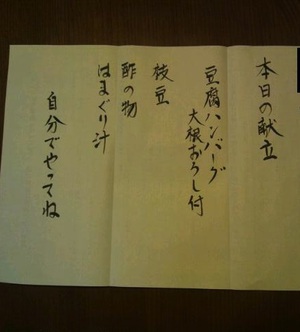 本日の献立
豆腐ハンバーグ
大根おろし付
枝豆
酢の物
はまぐり汁
自分でやってね